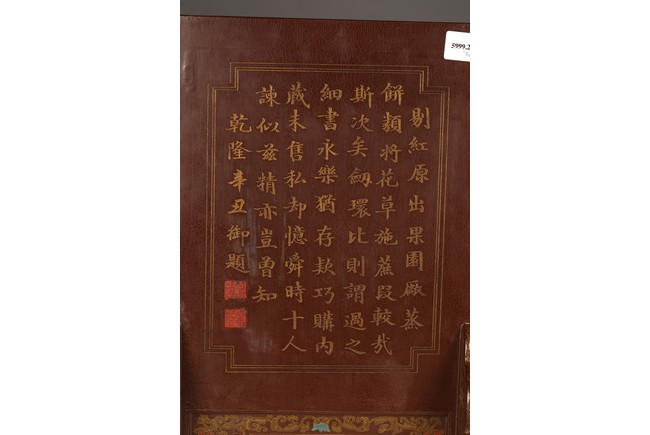 剔紅原出果園厰蒸
餅𩔖將花草施蔗叚較哉
斯次矣劔環比則謂過之
細書永樂猶存款巧購內
藏未售私却憶舜時十人
諫似茲精亦豈曾知
乾隆辛丑御題
5999.2